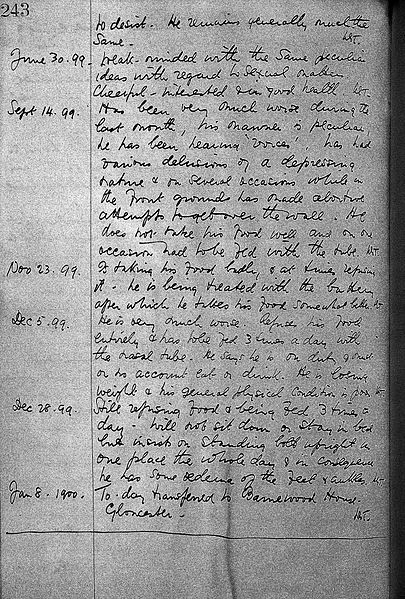 243
to desist. He remains generally much the
same.
June 30. 99. Weak-minded with the same peculiar
ideas with regard to sexual matters
Cheerful - interested & in good health.
Sept 14. 99. Has been very much worse during the
last month, his manner is peculiar,
he has been hearing 'voices' has had
various delusions of a depressing
nature & on several occasions while in
the front grounds has made abortive
attempts to get over the wall. He
does not take his food well and on one
occasion had to be fed with the tube.
Nov 23. 99. Is taking his food badly, & at times refusing
it. he is being treated with the battery
after which he takes his food somewhat better
Dec 5. 99. He is very much worse. Refuses his food
entirely & has to be fed 3 times a day with
the nasal tube. He says he is on duty & must
on no account eat or drink. He is losing
weight & his general physical condition is poor
Dec 28. 99. Still refusing food & being fed 3 times a
day - will not sit down or stay in bed
but insists on standing bolt upright in
one place the whole day & in consequence
he has some oedema of the feet & ankles
Jan 8. 1900. To-day transferred to Barnwood House
Gloucester.